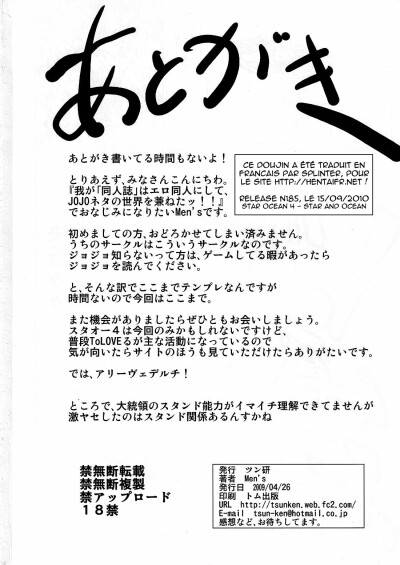 あとがき
あとがき書いてる時間もないよ！
とりあえず、みなさんこんにちわ。
『我が「同人誌」はエロ同人にして、
JOJOネタの世界を兼ねたッ！！』
でおなじみになりたいMen'sです。
CE DOUJIN A ÉTÉ TRADUIT EN
FRANCAIS PAR SPLINTER, POUR
LE SITE HTTP://HENTAIFR.NET !
RELEASE N185, LE 15/09/2010
STAR OCEAN 4 - STAR AND OCEAN
初めましての方、おどろかせてしまい済みません。
うちのサークルはこういうサークルなのです。
ジョジョ知らないって方は、ゲームしてる暇があったら
ジョジョを読んでください。
と、そんな訳でここまでテンプレなんですが
時間ないので今回はここまで。
また機会がありましたらぜひともお会いしましょう。
スタオー４は今回のみかもしれないですけど、
普段ToLOVEるが主な活動になっているので
気が向いたらサイトのほうも見ていただけたらありがたいです。
では、アリーヴェデルチ！
ところで、大統領のスタンド能力がイマイチ理解できてませんが
激ヤセしたのはスタンド関係あるんすかね
禁無断転載
禁無断複製
禁アップロード
１８禁
発行　ツン研
著者　Men's
発行日　2009/04/26
印刷　トム出版
URL　http://tsunken.web.fc2.com/
E-mail　tsun-ken@hotmail.co.jp
感想など、お待ちしてます。